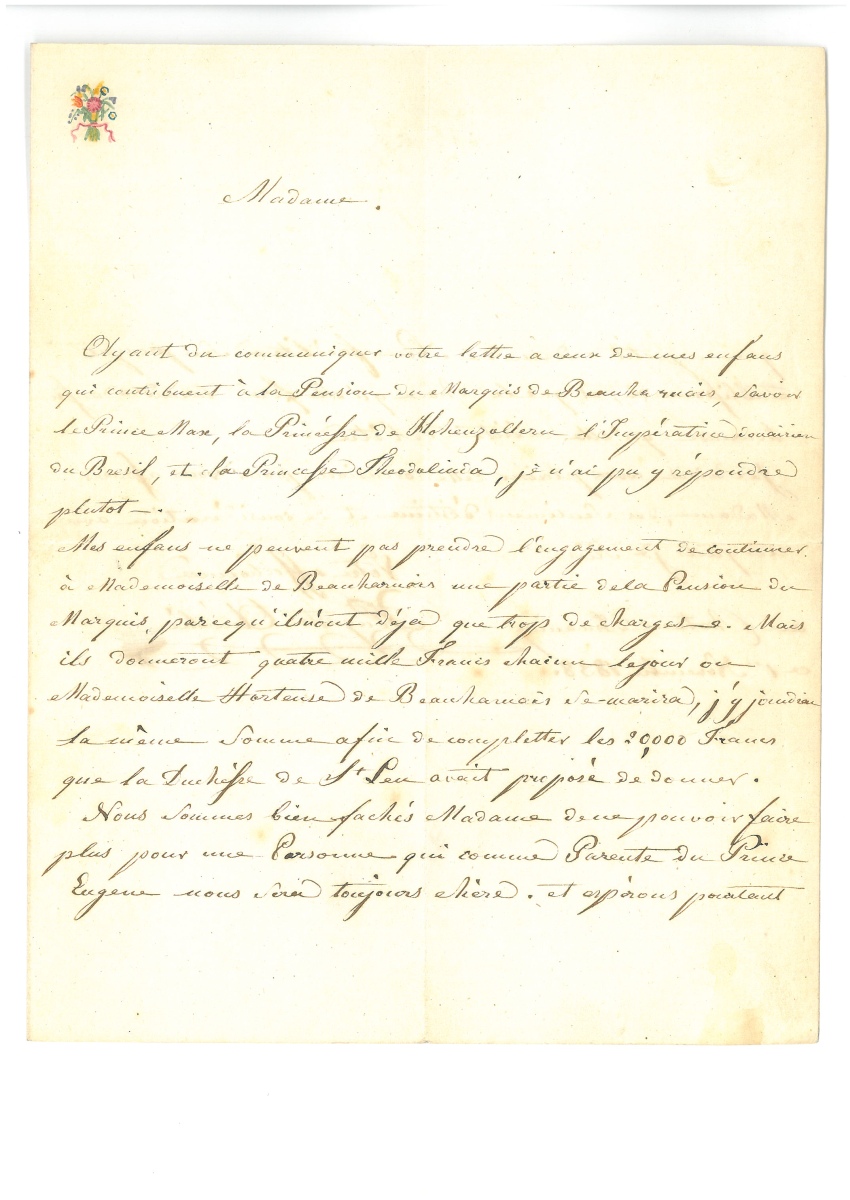 Madame.
Ayant du communiquer votre lettre a ceux de mes enfans
qui contribuent à la Pension du Marquis de Beauharnais, savoir
le Prince Max, la Princésse de Hohenzollern l'Impératrice douairiere
du Bresil, et la Princesse Theodolinda, je n'ai pu y répondre
plutot.
Mes enfans ne peuvent pas prendre l'engagement de continuer
à Mademoiselle de Beauharnois une partie de la Pension du
Marquis, parcequ'ils n'ont déja que trop de charges. Mais
ils donneront quatre mille Francs chacun le jour ou
Mademoiselle Hortense de Beauharnois se marira, j'y joindrai
la même somme afin de completter les 20,000 Francs
que la Duchésse de St Leu avait proposé de donner.
Nous sommes bien fachés Madame de ne pouvoir faire
plus pour une Personne qui comme Parente du Prince
Eugene nous sera toujours chère. et espérons pourtant